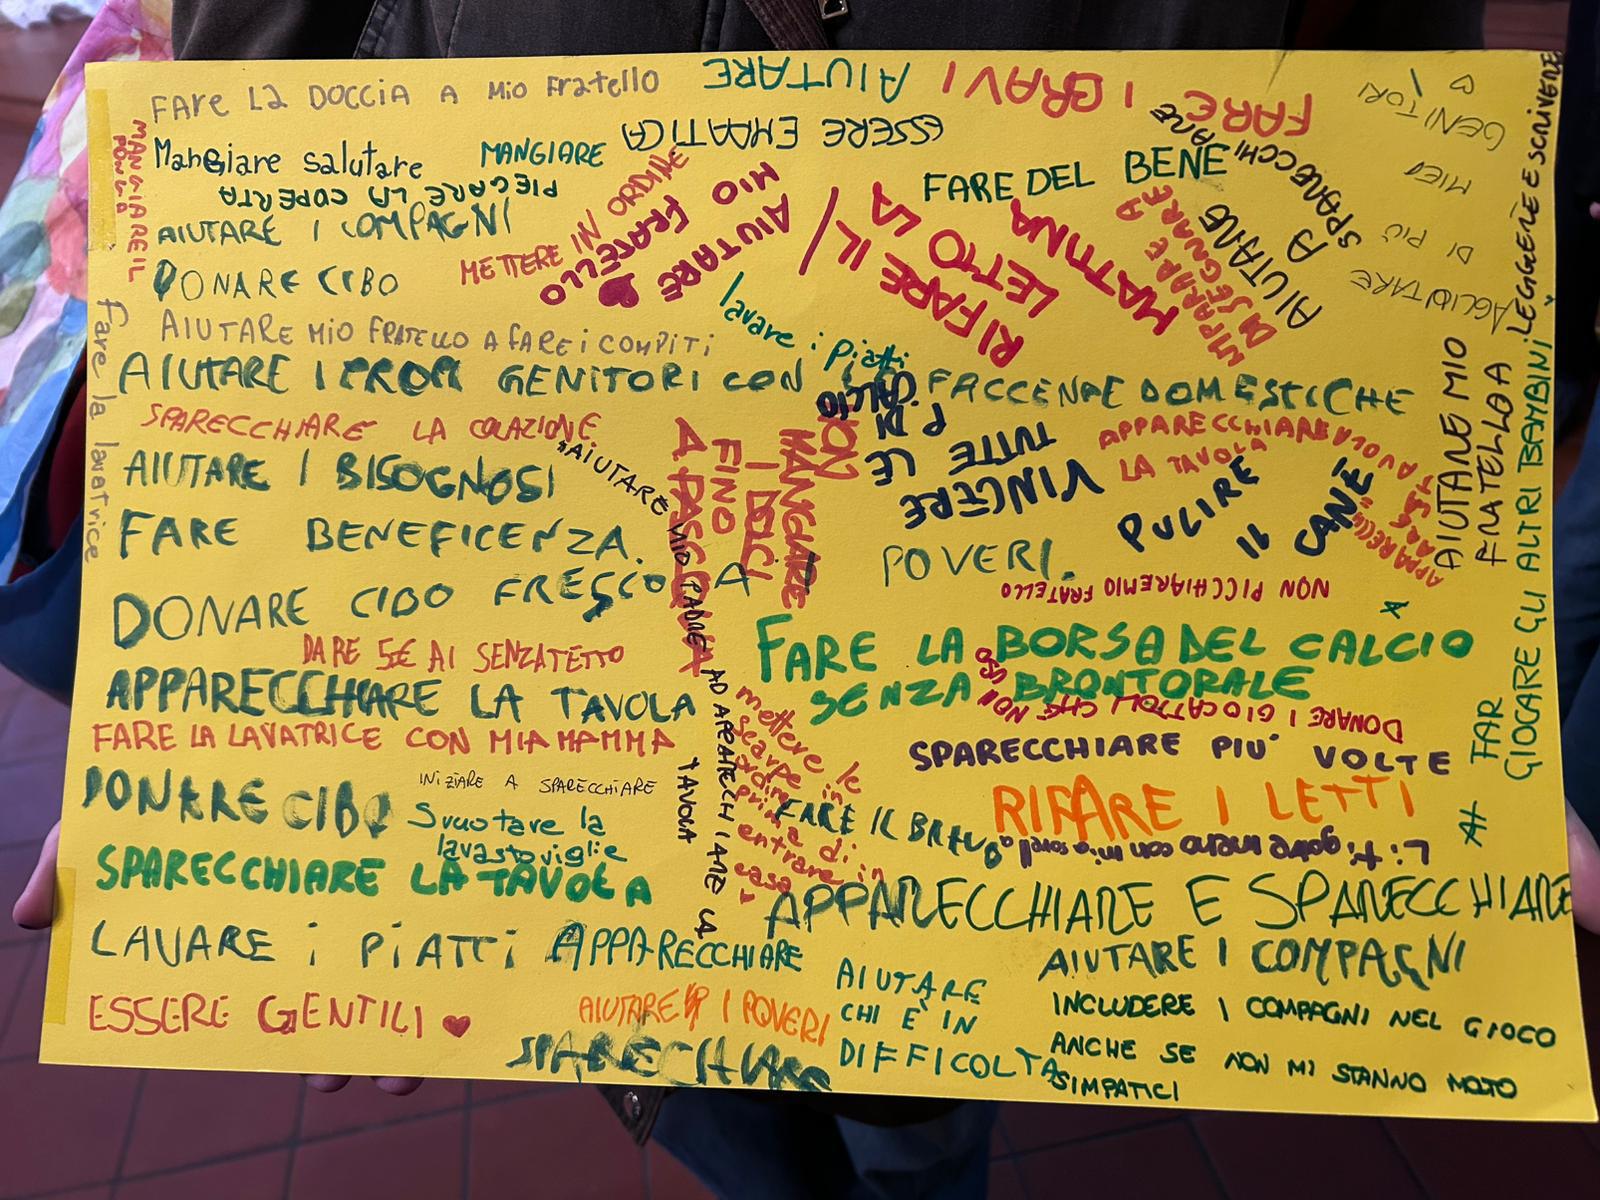 FARE LA DOCCIA A MIO FRATELLO
AIUTARE
FARE I BRAVI
ESSERE EMPATICA
Mangiare salutare
MANGIARE
MANGIARE IL
PIEGARE LA COPERTA
AIUTARE I COMPAGNI
METTERE IN ORDINE
AIUTARE
MIO
FRATELLO
DONARE CIBO
FARE DEL BENE
RIFARE IL
LETTO LA
MATTINA
IMPARARE A
DISEGNARE
AIUTARE
A
SPARECCHIARE
AIUTARE
DI PIÙ
MIEI
GENITORI
LEGGERE E SCRIVERE
AIUTARE MIO FRATELLO A FARE I COMPITI
lavare i piatti
Fare la lavatrice
AIUTARE I GENITORI CON FACCENDE DOMESTICHE
SPARECCHIARE LA COLAZIONE
AIUTARE I BISOGNOSI
AIUTARE MIO PADRE AD APPARECHIARE LA
TAVOLA
NON
MANGIARE
I DOLCI
FINO
A PASQUA
VINCERE
TUTTE
LE
P. DI
CALCIO
APPARECCHIARE
LA TAVOLA
PULIRE
IL
CANE
AIUTARE MIO
FRATELLO A
FARE BENEFICENZA.
DONARE CIBO FRESCO A
POVERI.
NON PICCHIARE MIO FRATELLO
DARE 5€ AI SENZATETTO
FARE LA BORSA DEL CALCIO
SENZA BRONTORALE
APPARECCHIARE LA TAVOLA
DONARE I GIOCATTOLI CHE NON
USO
FARE LA LAVATRICE CON MIA MAMMA
SPARECCHIARE PIU' VOLTE
FAR
GIOCARE GLI ALTRI BAMBINI
DONARE CIBO
INIZIARE A SPARECCHIARE
mettere le
scarpe in
ordine
prima di
entrare in
casa
RIFARE I LETTI
Svuotare la
lavastoviglie
FARE IL BRAVO
Litigare meno con mia sorella
SPARECCHIARE LA TAVOLA
APPARECCHIARE E SPARECCHIARE
LAVARE i PIATTI
APPARECCHIARE
AIUTARE
CHI È IN
DIFFICOLTÀ
AIUTARE I COMPAGNI
ESSERE GENTILI
AIUTARE I POVERI
INCLUDERE I COMPAGNI NEL GIOCO
ANCHE SE NON MI STANNO MOLTO
SIMPATICI